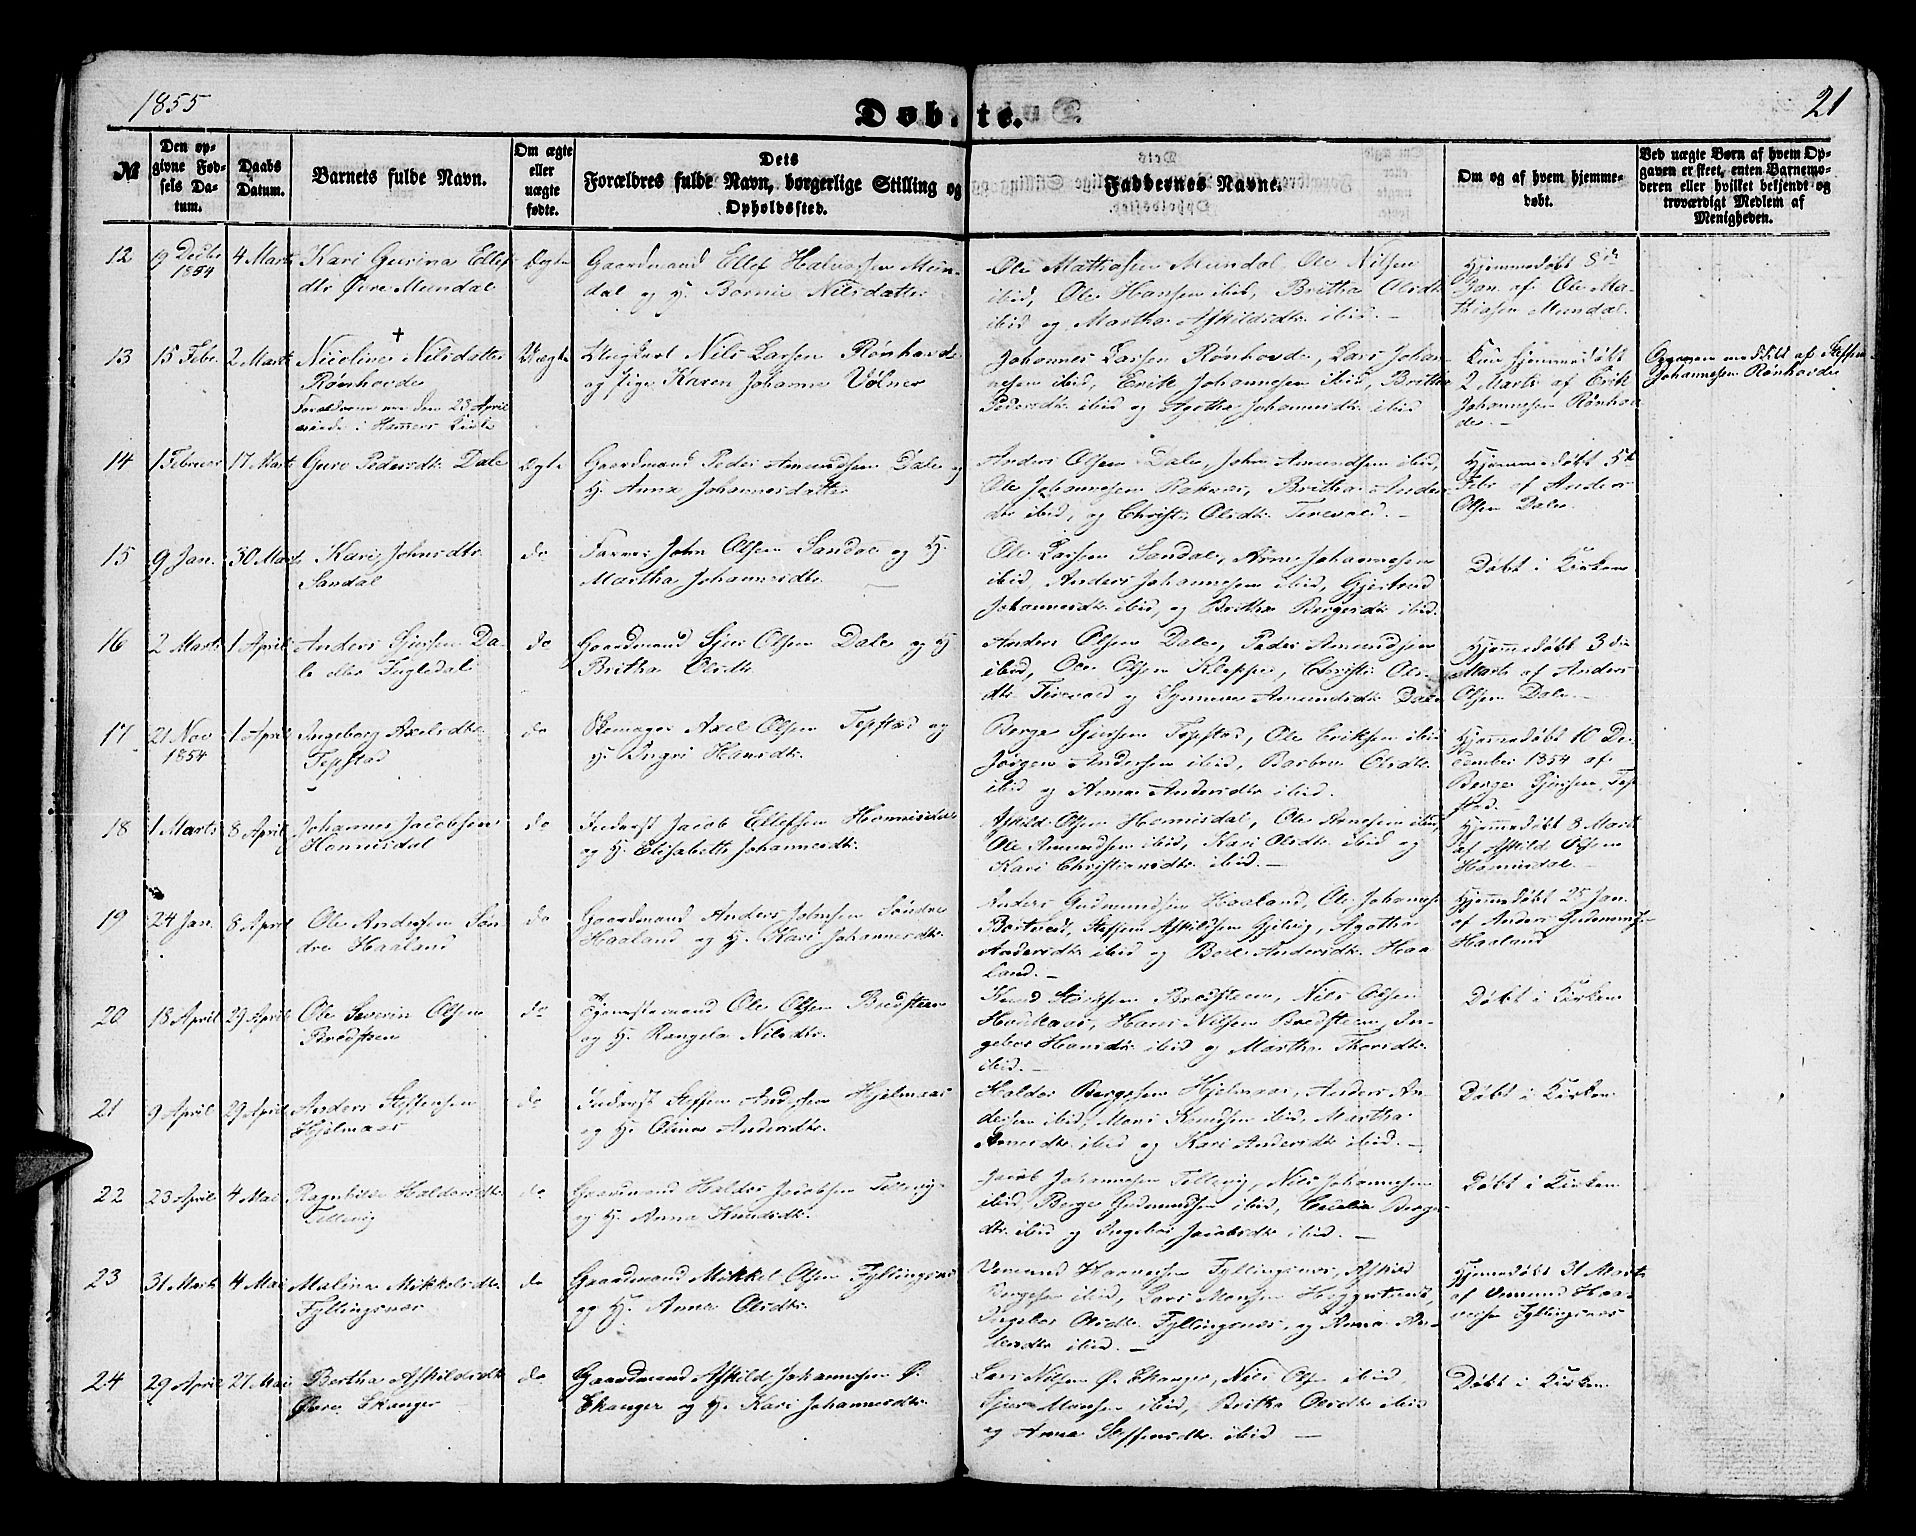 1855
Døbte.
21
№
Den opgivne Fødsels Datum.
Daabs Datum.
Barnets fulde Navn.
Om ægte eller uægte fødte.
Dets Forældres fulde Navn, borgerlige Stilling og Opholdssted.
Faddernes Navne.
Om og af hvem hjemmedøbt.
Ved uægte Børn af hvem Opgaven er skeet, enten Barnemoderen eller hvilket bekjendt og troværdigt Medlem af Menigheden.
12
9 Decbr
1854
4 Marts
Kari Gurina Ellefs
dtr Øvre Mundal
Ægte
Gaardmand Ellef Halvorsen Mun-
dal og H. Børnie Nilsdatter
Ole Mathiasen Mundal, Ole Nilsen
ibid, Ole Hansen ibid, Britha Olsdtr
ibid og Martha Askildsdtr ibid. —
Hjemmedøbt 8de
Jan. af Ole Ma-
thiasen Mundal.
13
15 Febr.
2 Marts
Nicoline Nilsdatter
Rønhovde
Forældrene ere den 23 April
viede i Hammers Kirke
Uægte
Ungkarl Nils Larsen Rønhovde
og Pige Karen Johanne Volner
Johannes Larsen Rønhovde, Lars Johan-
nesen ibid, Erik Johannesen ibid, Britha
Pedersdtr ibid og Agatha Johannesdtr ibid
Kun hjemmedøbt
2 Marts af Erik
Johannesen Rønhov-
de. —
Opgaven meddelt af Steffen
Johannesen Rønhovde
14
1 Februar
17 Marts
Guro Pedersdtr Dale
Ægte
Gaardmand Peder Amundsen Dale og
H. Anna Johannesdatter
Anders Olsen Dale, John Amundsen ibid,
Ole Johannesen Raknæs, Britha Anders
dtr ibid, og Christi Olsdtr Teirvold. —
Hjemmedøbt 5te
Febr af Anders
Olsen Dale.
15
9 Jan.
30 Marts
Kari Johnsdtr
Sandal
do
Farver John Olsen Sandal og H.
Martha Johannesdtr. —
Ole Larsen Sandal, Arne Johannesen
ibid, Anders Johannesen ibid, Gjertrud
Johannesdtr ibid, og Britha Børgesdtr ibid.
Døbt i Kirken
16
2 Marts
1 April
Anders Sjursen Da-
le eller Ingledal
do
Gaardmand Sjur Olsen Dale og H
Britha Olsdtr.
Anders Olsen Dale, Peder Amundsen
ibid, Ole Olsen Kleppe, Christi Ols-
dtr Teirvold og Synneve Amundsdtr Dale
Hjemmedøbt 3 die
Marts af Anders
Olsen Dale. —
17
21 Nov
1854
1 April
Ingeborg Axelsdtr
Tepstad
do
Skomager Axel Olsen Tepstad og
H. Ingri Hansdtr.
Børge Sjursen Tepstad, Ole Eriksen ibid
Jørgen Andersen ibid, Barbra Olsdtr
ibid og Anna Andersdtr ibid.
Hjemmedøbt 10 De-
cember 1854 af
Børge Sjursen Tep-
stad. —
18
1 Marts
8 April
Johannes Jacobsen
Hannisdal
do
Inderst Jacob Ellefsen Hannisdal
og H. Elisabeth Johannesdtr.
Askild Olsen Hannisdal, Ole Arnesen ibid,
Ole Amundsen ibid, Kari Olsdtr ibid og
Kari Christiansdtr ibid. —
Hjemmedøbt 8 Marts
af Askild Olsen
Hannisdal. —
19
24 Jan.
8 April
Ole Andersen Søn-
dre Haaland
do
Gaardmand Anders Johnsen Søndre
Haaland og H. Kari Johannesdtr.
Anders Gudmundsen Haaland, Ole Johannesen
Bortveid, Steffen Askildsen Gjelvig, Agatha
Andersdtr ibid og Brita Andersdtr Haa-
land. —
Hjemmedøbt 25 Jan.
af Anders Gudmunds-
Haaland
20
18 April
29 April
Ole Severin Olsen
Bredsteen
do
Tjenestemand Ole Olsen Bredsteen
og H. Rangela Nilsdtr.
Knud Størksen Bredsteen, Nils Olsen
Hodnaas, Hans Nilsen Bredsteen, In-
gebor Hansdtr ibid og Martha Thorsdtr
ibid. —
Døbt i Kirken
21
9 April
29 April
Anders Steffensen
Hjelmaas
do
Inderst Steffen Andersen Hjelmaas
og H. Anna Andersdtr.
Haldor Børgesen Hjelmaas, Anders An-
dersen ibid, Mons Knudsen ibid, Martha
Arnesdtr ibid og Kari Andersdtr ibid. —
Døbt i Kirken
22
23 April
4 Mai
Ragnhilde Haldorsdtr
Tellevig
do
Gaardmand Haldor Jacobsen Tellevig
og H. Anna Knudsdtr.
Jacob Johannesen Tellevig, Nils Johannesen
ibid, Børge Gudmundsen ibid, Cecilia Børges
dtr ibid og Ingebor Jacobsdtr ibid. —
Døbt i Kirken
23
31 Marts
4 Mai
Malina Mikkelsdtr
Fyllingsnæs
do
Gaardmand Mikkel Olsen Fyllingsnæs
og H. Anna Olsdtr.
Vemund Haavesen Fyllingsnæs, Askild
Børgesen ibid, Lars Monsen Heggestrand,
Ingebor Olsdtr Fyllingsnæs, og Anna As-
kildsdtr ibid. —
Hjemmedøbt 31 Marts
af Vemund Haa-
vesen Fyllingsnæs
24
29 April
27 Mai
Bertha Askildsdtr
Øvre Ekanger
do
Gaardmand Askild Johannesen Ø:
Ekanger og H. Kari Johannesdtr.
Lars Nilsen Ø: Ekanger, Nils Olsen ibid,
Sjur Monsen ibid, Britha Olsdtr ibid
og Anna Steffensdtr ibid —
Døbt i Kirken